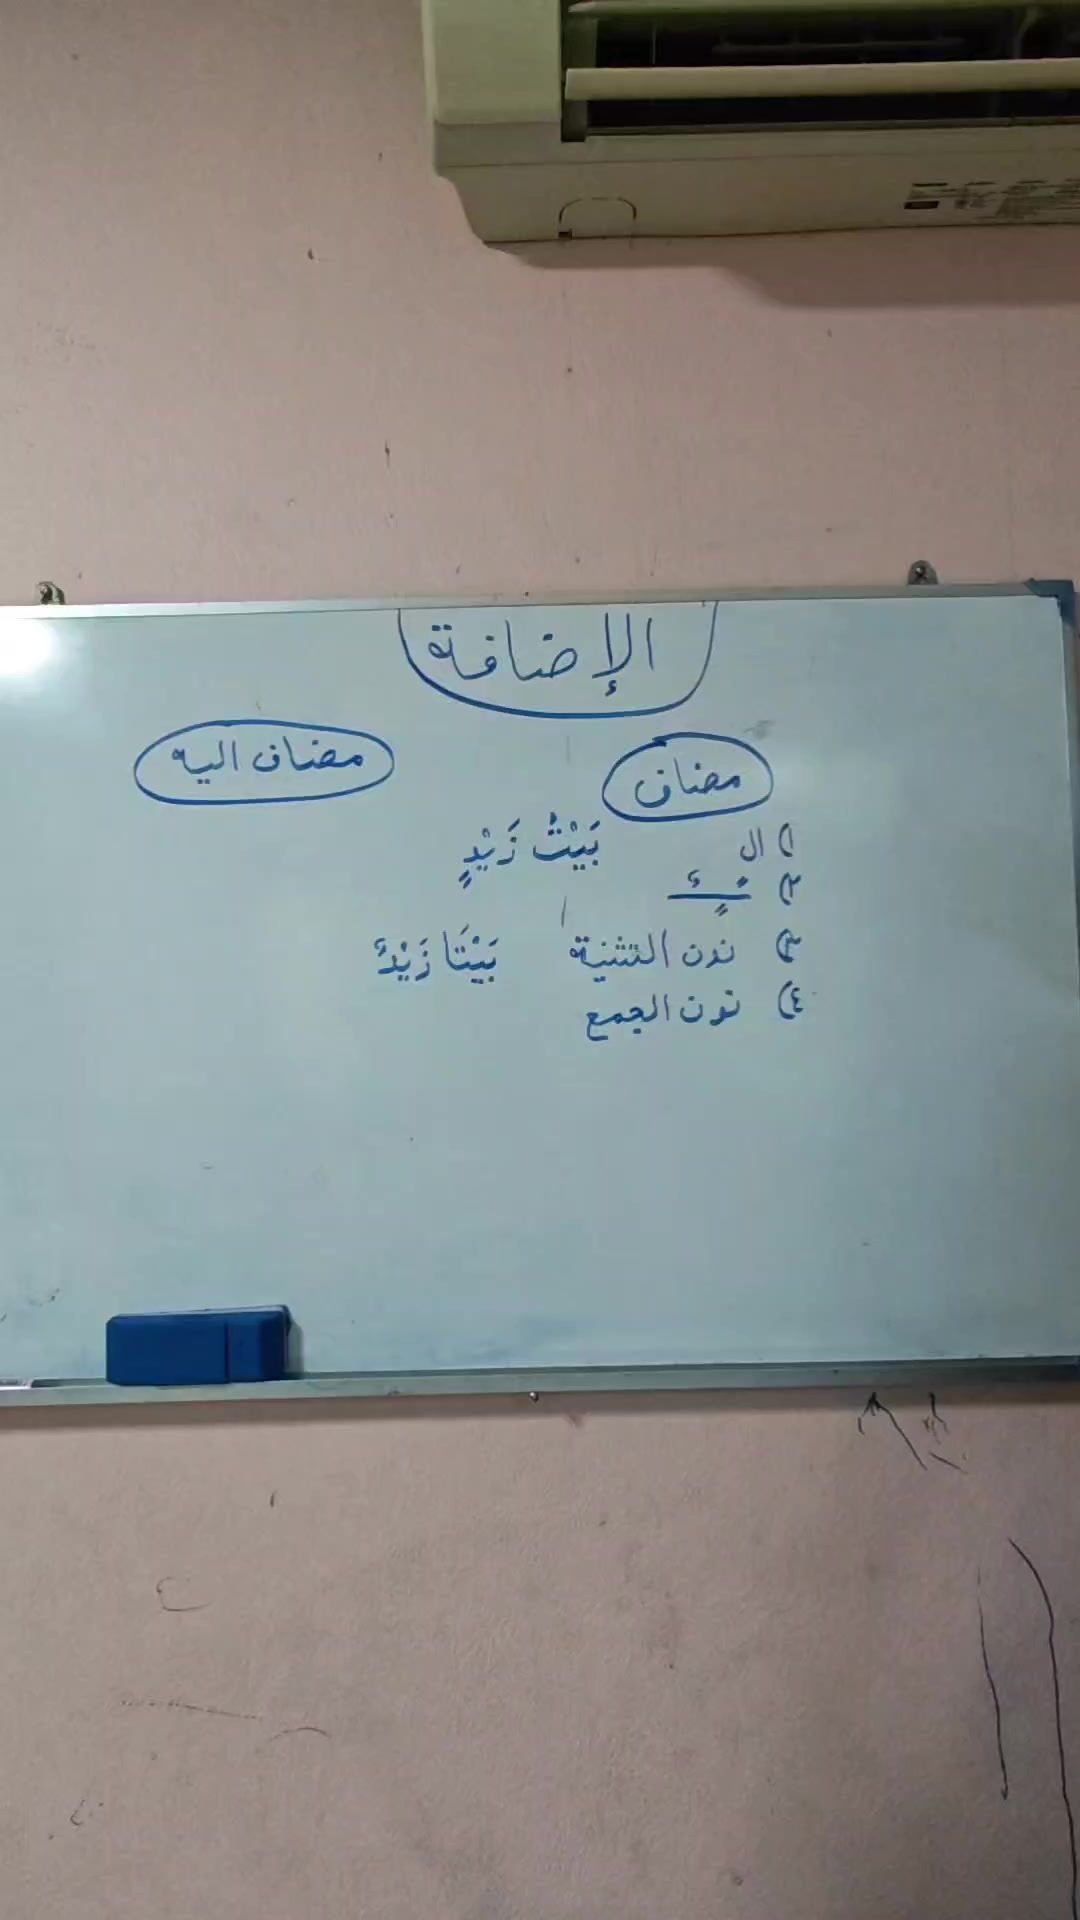 الإضافة
مضاف
مضاف اليه
١) ال
بَيْتُ زَيْدٍ
٢) ـًـٍـٌ
٣) نون التثنية
بَيْتَا زَيْدٌ
٤) نون الجمع